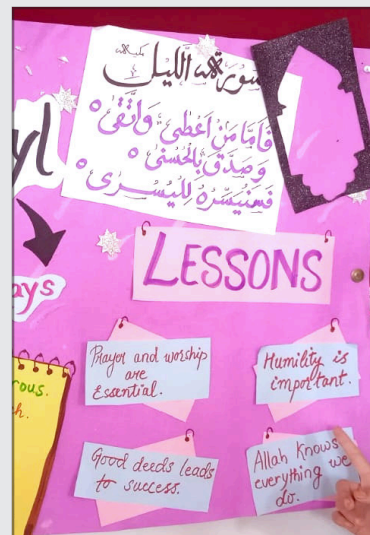 سورة الليل مكية
فَاَمَّا مَنْ اَعْطٰى وَاتَّقٰى ٥
وَصَدَّقَ بِالْحُسْنٰى ٥
فَسَنُيَسِّرُهٗ لِلْيُسْرٰى ٥
yl
ays
LESSONS
rous.
h.
Prayer and worship
are
Essential.
Humility is
important.
Good deeds leads
to success.
Allah knows
everything we
do.